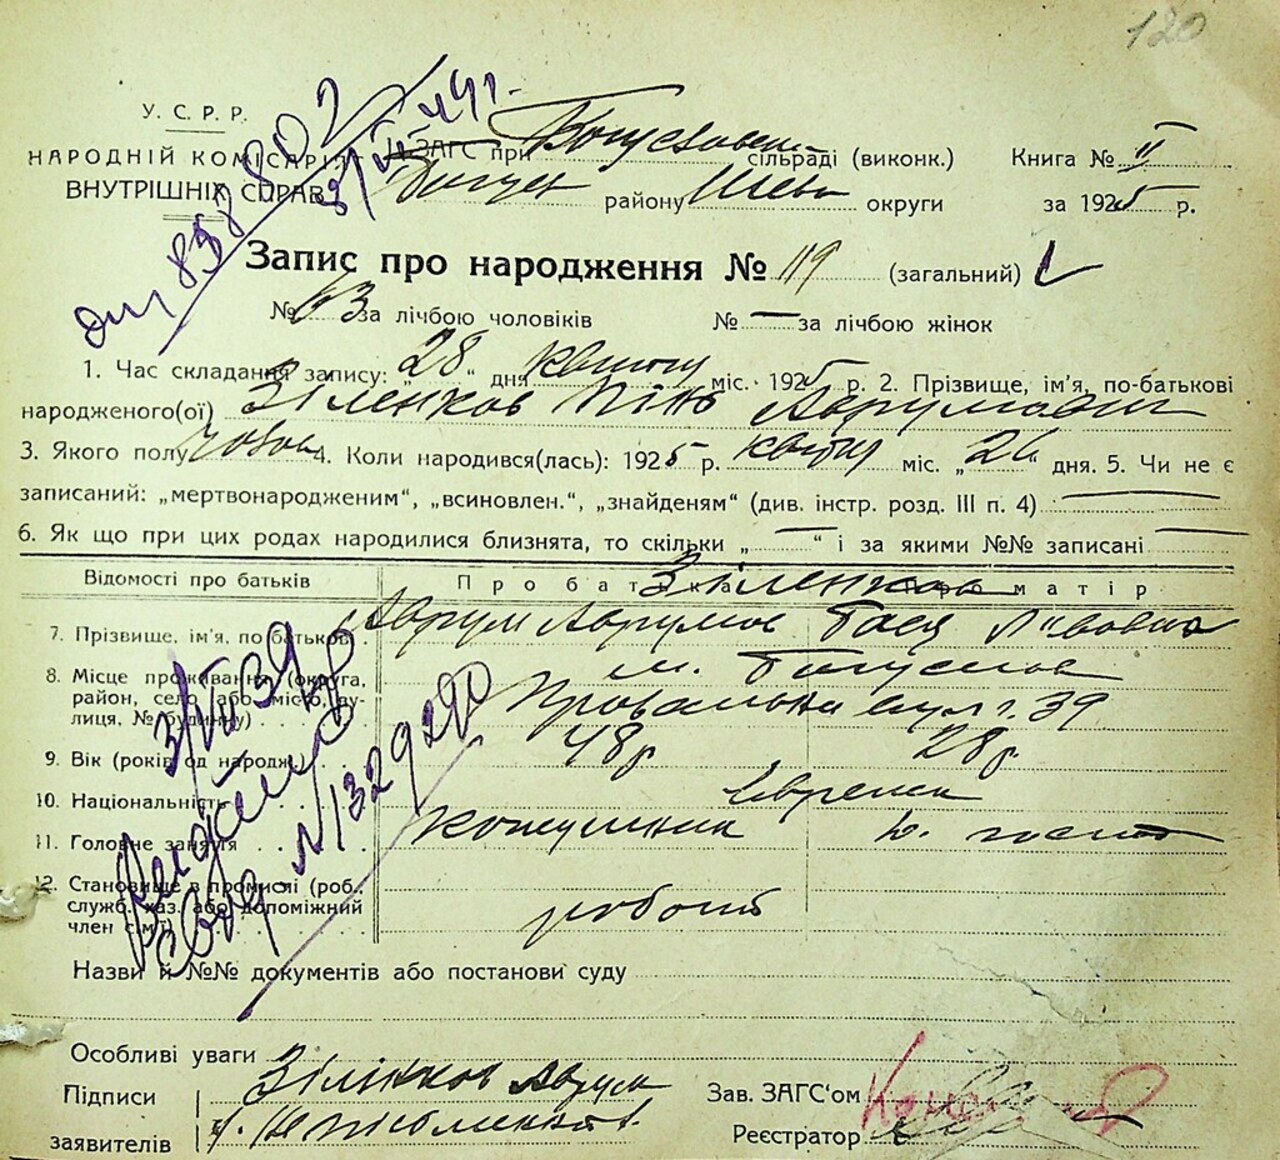 120
У. С. Р. Р.
НАРОДНІЙ КОМІСАРІЯТ
ВНУТРІШНІХ СПРАВ
ЗАГС при Богуславськ сільраді (виконк.) Книга № II
Богусл району Шевч округи за 1925 р.
Запис про народження № 119 (загальний)
№ 63 за лічбою чоловіків № — за лічбою жінок
1. Час складання запису: „28“ дня квітня міс. 1925 р. 2. Прізвище, ім'я, по-батькові
народженого(ої) Зіленков Пінь Аврумович
3. Якого полу чолов 4. Коли народився(лась): 1925 р. квітня міс. „26“ дня. 5. Чи не є
записаний: „мертвонародженим“, „всиновлен.“, „знайденям“ (див. інстр. розд. III п. 4) —
6. Як що при цих родах народилися близнята, то скільки „—“ і за якими №№ записані —
Відомості про батьків Про батька Про матір
Зіленков
7. Прізвище, ім'я, по батькові Аврум Аврумов Бася Лівовна
8. Місце проживання (округа, м. Богуслав
район, село або місто, ву-
лиця, № будинку) Провальна вул. 39
9. Вік (років од народж.) 48 р 28 р.
10. Національність Евреи
11. Головне заняття Кожушник
12. Становище в промислі (роб.,
служб. хаз. або допоміжний
член сім'ї) робот
Назви й №№ документів або постанови суду
Особливі уваги
Підписи Зілінков Аврум Зав. ЗАГС'ом
заявителів Реєстратор
№ 1329290